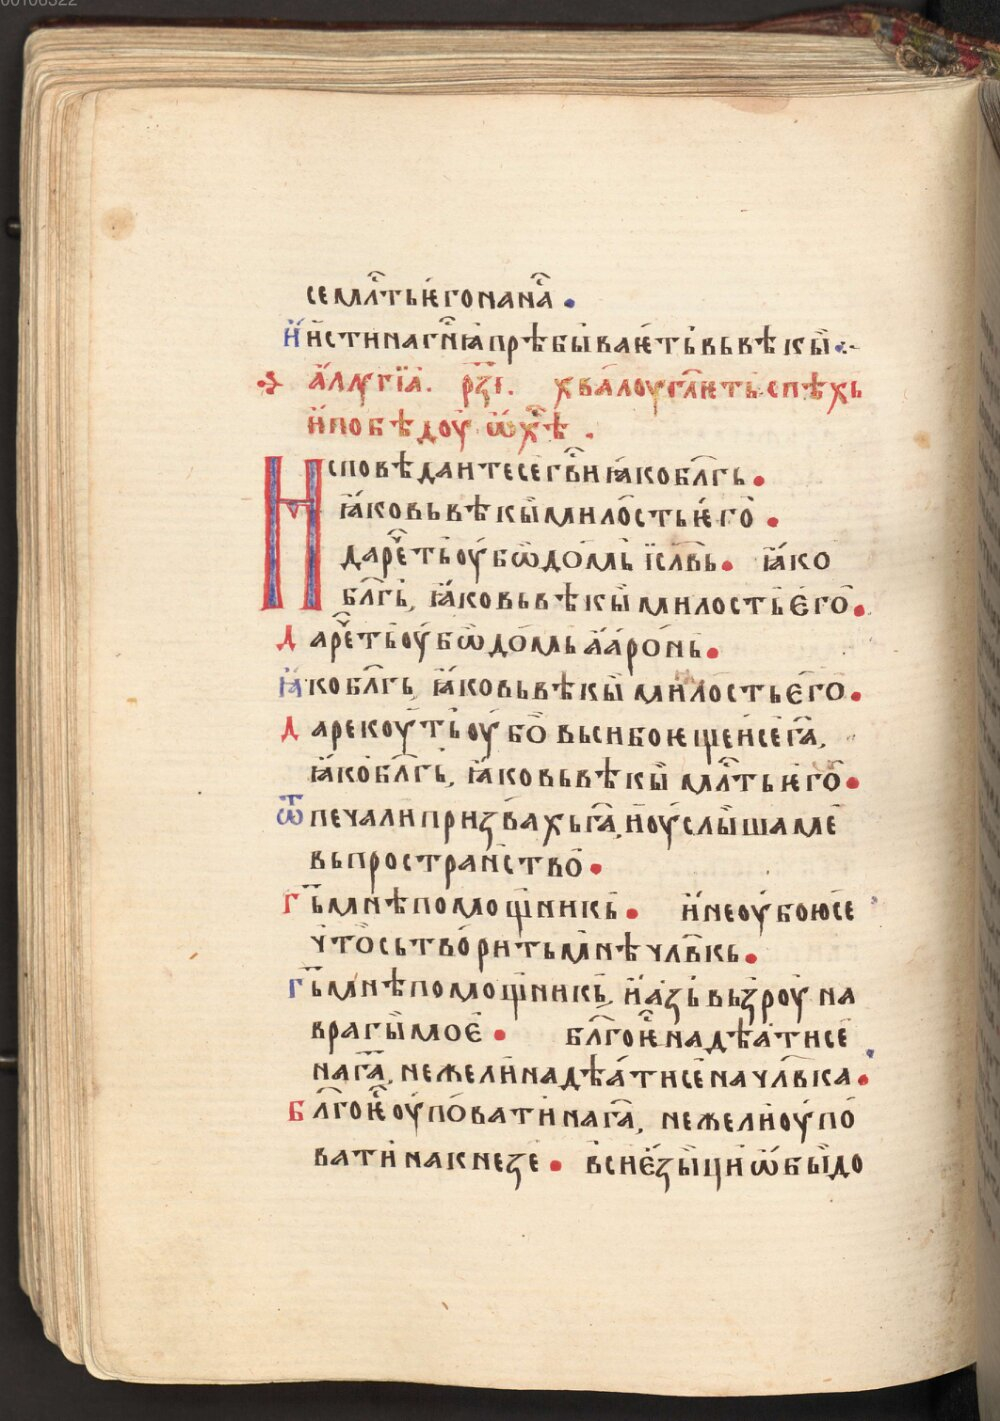 00106322
се мл҃ть ѥго на на҃.
И истина гн҃ꙗ прѣбываѥть вь вѣкы.
аллугїа. рз҃і. хвалоу гл҃ѥть спѣхь
и побѣдоу ѡ хе҃.
Исповѣдаитесе гв҃и ꙗко бл҃гь.
ꙗко вь вѣкы милость ѥго.
да рече҃ть оубѡ домь їсл҃вь. ꙗко
бл҃гь, ꙗко вь вѣкы милость єго.
да рече҃ть оубѡ домь ааронь.
ꙗко бл҃гь, ꙗко вь вѣкы милость єго.
да рекоуть оубо вьси боѥщеи се га҃,
ꙗко бл҃гь, ꙗко вь вѣкы мл҃ть ѥго.
Ѿ печали призвахь га҃, и оуслыша ме
вь пространство.
Г҃ь мнѣ помощникь. и не оубою се
что сьтворить мнѣ чл҃вкь.
Г҃ь мнѣ помощникь, и азь вьзроу на
врагы моє. бл҃го ѥ҃ надѣати се
на га҃, нежели надѣати се на чл҃вка.
Бл҃го ѥ҃ оуповати на га҃, нежели оупо
вати на кнезе. вси єзыци ѡбыдо